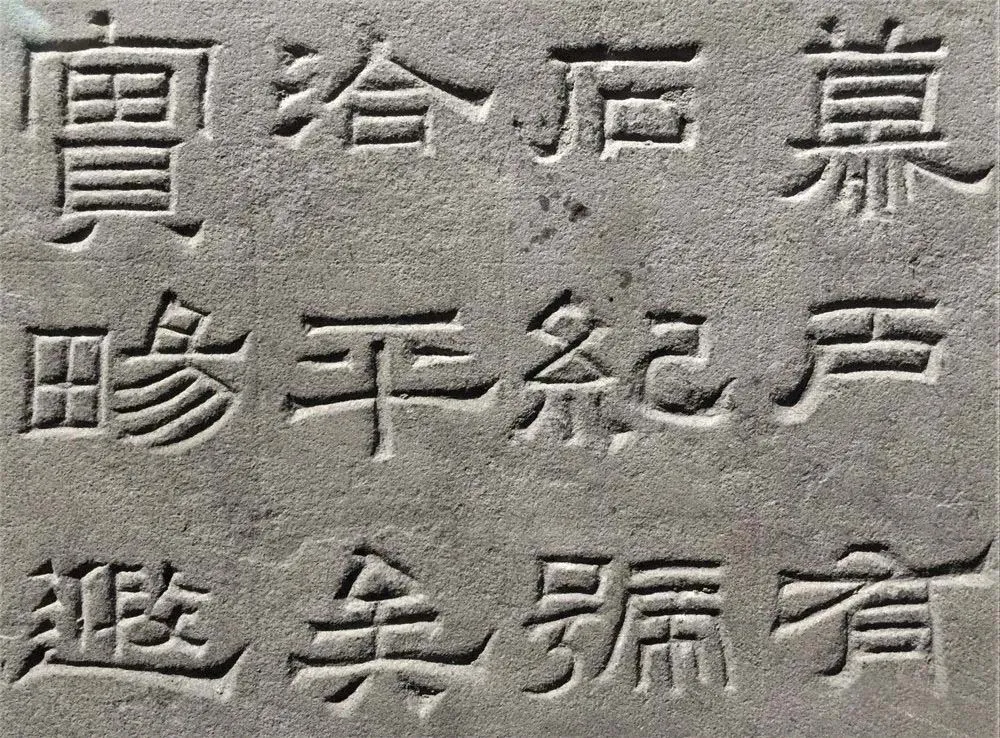 慕戶有
石紀號
洽平矣
實畼遐